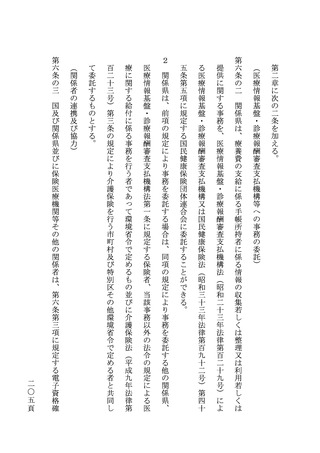 第二章に次の二条を加える。
（医療情報基盤・診療報酬審査支払機構等への事務の委託）
第六条の二　関係県は、療養費の支給に係る手帳所持者に係る情報の収集若しくは整理又は利用若しくは
提供に関する事務を、医療情報基盤・診療報酬審査支払機構法（昭和二十三年法律第百二十九号）によ
る医療情報基盤・診療報酬審査支払機構又は国民健康保険法（昭和三十三年法律第百九十二号）第四十
五条第五項に規定する国民健康保険団体連合会に委託することができる。
２　関係県は、前項の規定により事務を委託する場合は、同項の規定により事務を委託する他の関係県、
医療情報基盤・診療報酬審査支払機構法第一条に規定する保険者、当該事務以外の法令の規定による医
療に関する給付に係る事務を行う者であって環境省令で定めるもの並びに介護保険法（平成九年法律第
百二十三号）第三条の規定により介護保険を行う市町村及び特別区その他環境省令で定める者と共同し
て委託するものとする。
（関係者の連携及び協力）
第六条の三　国及び関係県並びに保険医療機関等その他の関係者は、第六条第三項に規定する電子資格確
二〇五頁